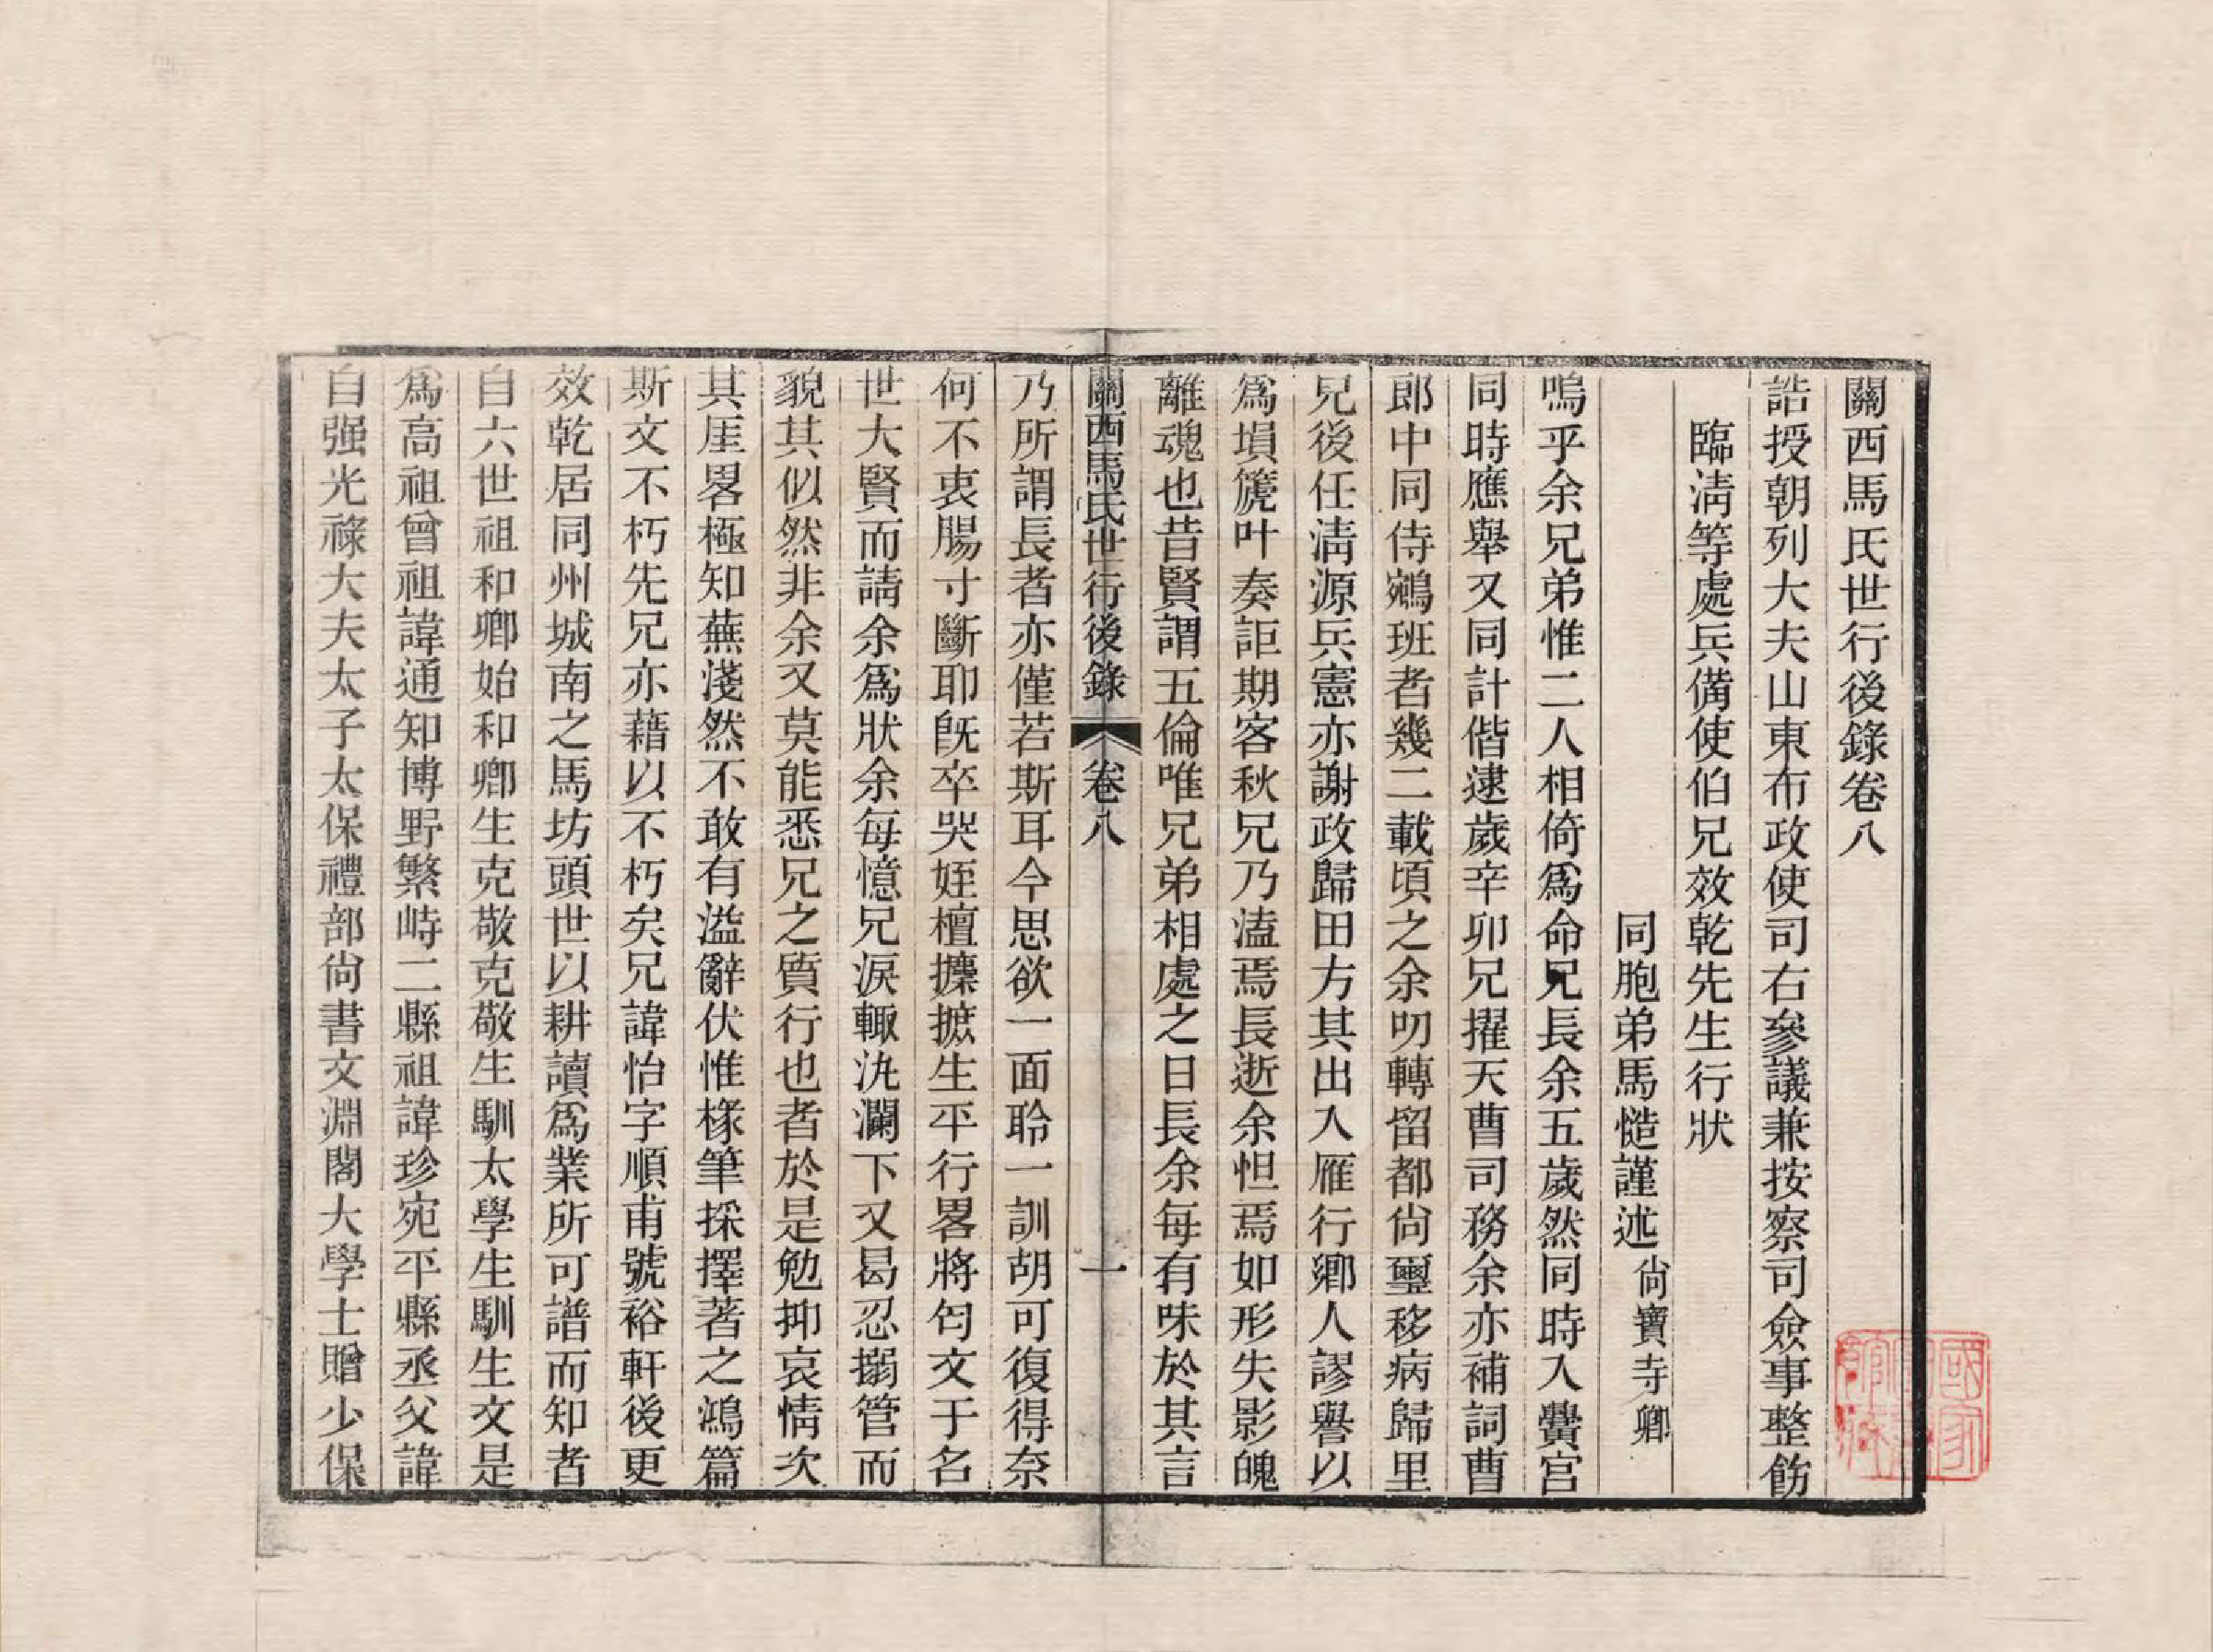 關西馬氏世行後錄卷八
誥授朝列大夫山東布政使司右參議兼按察司僉事整飭
臨淸等處兵備使伯兄效乾先生行狀
同胞弟馬慥謹述尙寶寺卿
嗚乎余兄弟惟二人相倚爲命兄長余五歲然同時入黌宮
同時應舉又同計偕逮歲辛卯兄擢天曹司務余亦補詞曹
郎中同侍鵷班者幾二載頃之余叨轉留都尙璽移病歸里
兄後任淸源兵憲亦謝政歸田方其出入雁行鄉人謬譽以
爲塤篪叶奏詎期客秋兄乃溘焉長逝余怛焉如形失影魄
離魂也昔賢謂五倫唯兄弟相處之日長余每有味於其言
關西馬氏世行後錄 卷八 一
乃所謂長者亦僅若斯耳今思欲一面聆一訓胡可復得奈
何不衷腸寸斷耶旣卒哭姪檀攟摭生平行畧將匄文于名
世大賢而請余爲狀余每憶兄淚輒汍瀾下又曷忍搦管而
貌其似然非余又莫能悉兄之質行也者於是勉抑哀情次
其厓畧極知蕪淺然不敢有溢辭伏惟椽筆採擇著之鴻篇
斯文不朽先兄亦藉以不朽矣兄諱怡字順甫號裕軒後更
效乾居同州城南之馬坊頭世以耕讀爲業所可譜而知者
自六世祖和卿始和卿生克敬克敬生馴太學生馴生文是
爲高祖曾祖諱通知博野繁峙二縣祖諱珍宛平縣丞父諱
自强光祿大夫太子太保禮部尙書文淵閣大學士贈少保